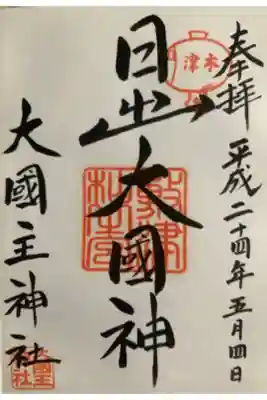 奉拝 平成二十四年五月四日
木津
日出大國神
大國主神社